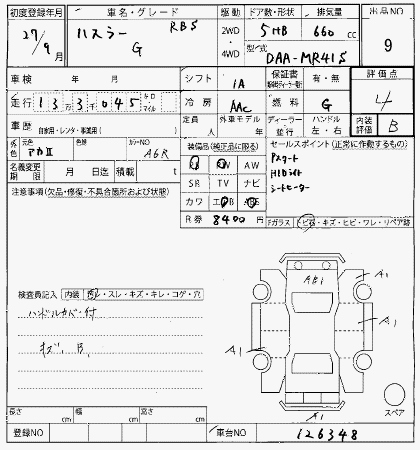 初度登録年月 車名・グレード 駆動 ドア数・形状 排気量 出品NO
27/9月 ハスラー RBS 2WD 4WD 5HB 660cc 9
G 型式 DAA-MR41S
車検 年 月 シフト IA 保証書 有・無 評価点
走行 13万3千045 キロ マイル 冷房 AAC 燃料 G 4
車歴 自家用・レンタ・事業用 定員 人 外車モデル 年 ディーラー 並行 ハンドル 左・右 内装評価 B
外色 元色 アカII 色替 カラーNO A6R 装備品(純正品に限る) セールスポイント(正常に作動するもの)
名義変更期限 月 日迄 積載 t AW
SR TV ナビ
カワ
R券 8400円
プスタート
HIDライト
シートヒーター
注意事項(欠品・修復・不具合箇所および状態)
Fガラス トビ石・キズ・ヒビ・ワレ・リペア跡
検査員記入 内装 スレ・キズ・キレ・コゲ・穴
ハンドルカバー付
キズ、B、
A1
A1
A1
A1
スペア
長さ cm 幅 cm 高さ cm
登録NO 車台NO 126348